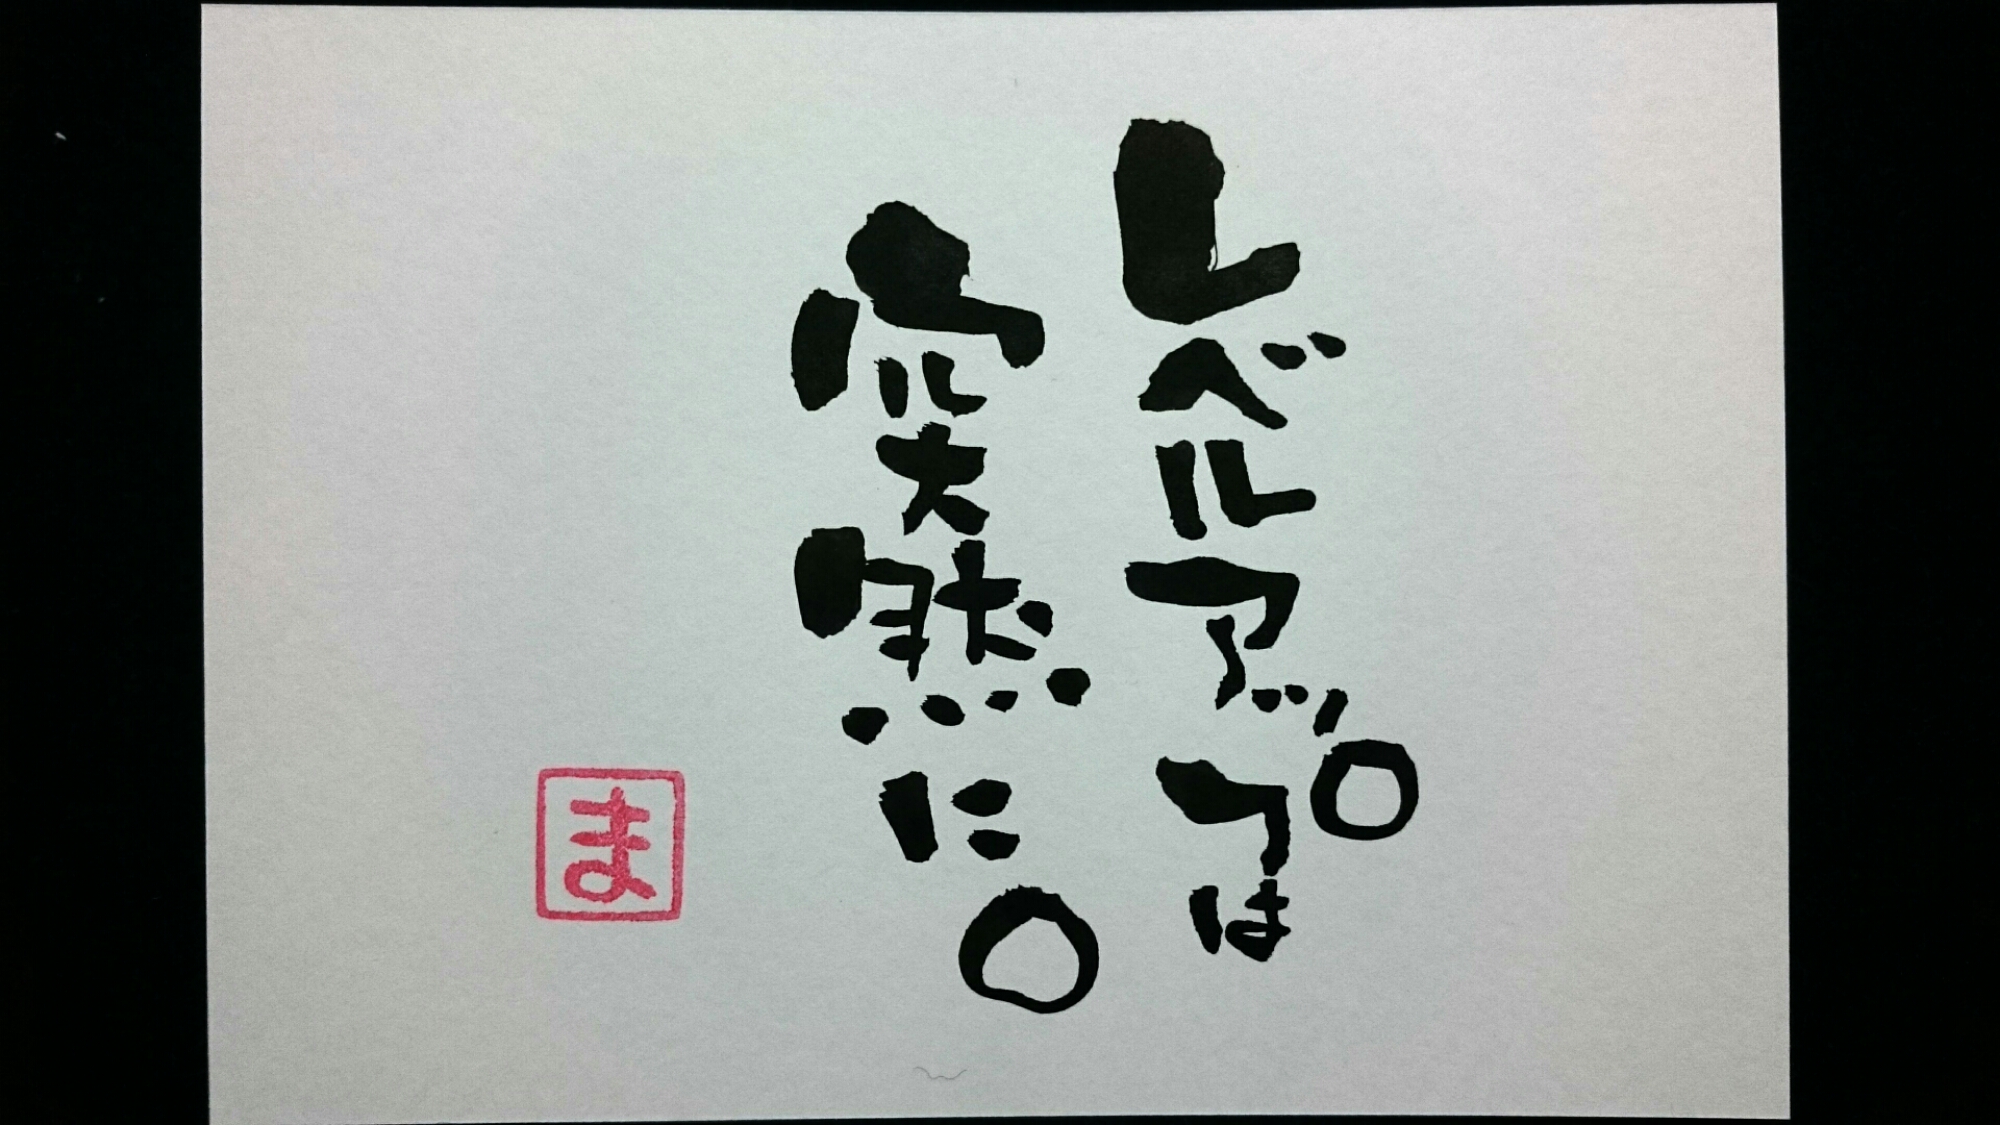 レベルアップは
突然に。
ま